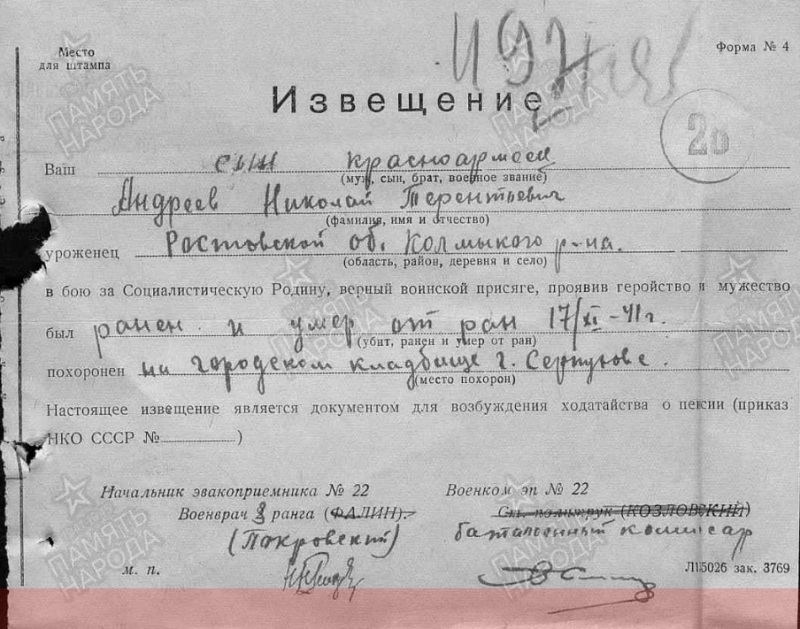 Место
для штампа
Форма № 4
Извещение
26
Ваш сын красноармеец
(муж, сын, брат, военное звание)
Андреев Николай Терентьевич
(фамилия, имя и отчество)
уроженец Ростовской об. Колмыкого р-на.
(область, район, деревня и село)
в бою за Социалистическую Родину, верный воинской присяге, проявив геройство и мужество
был ранен и умер от ран 17/XI-41г.
(убит, ранен и умер от ран)
похоронен на городском кладбище г. Серпухове.
(место похорон)
Настоящее извещение является документом для возбуждения ходатайства о пенсии (приказ
НКО СССР № )
Начальник эвакоприемника № 22
Военком эп № 22
Военврач 3 ранга (ФАЛИН).
Ст. политрук (КОЗЛОВСКИЙ)
(Покровский)
батальонный комиссар
м. п.
Л15026 зак. 3769
ПАМЯТЬ НАРОДА